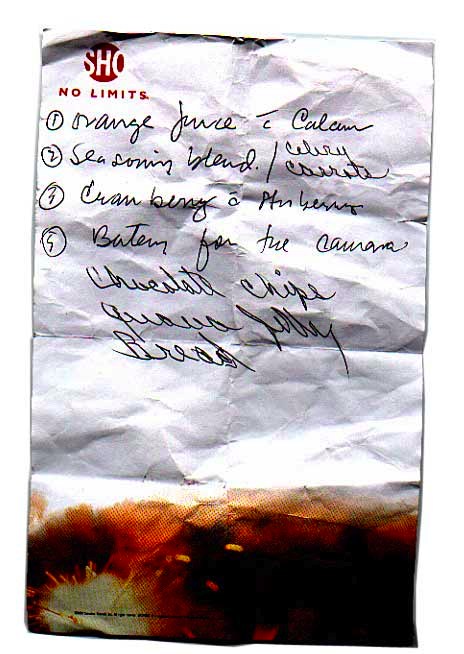 SHO
NO LIMITS.
① Orange Juice c̄ Calcium
② Seasoning blend. / Celery
Carrots
③ Cranberry c̄
⑤ Batery for the camara
Chocolate chips
guava Jelly
Bread